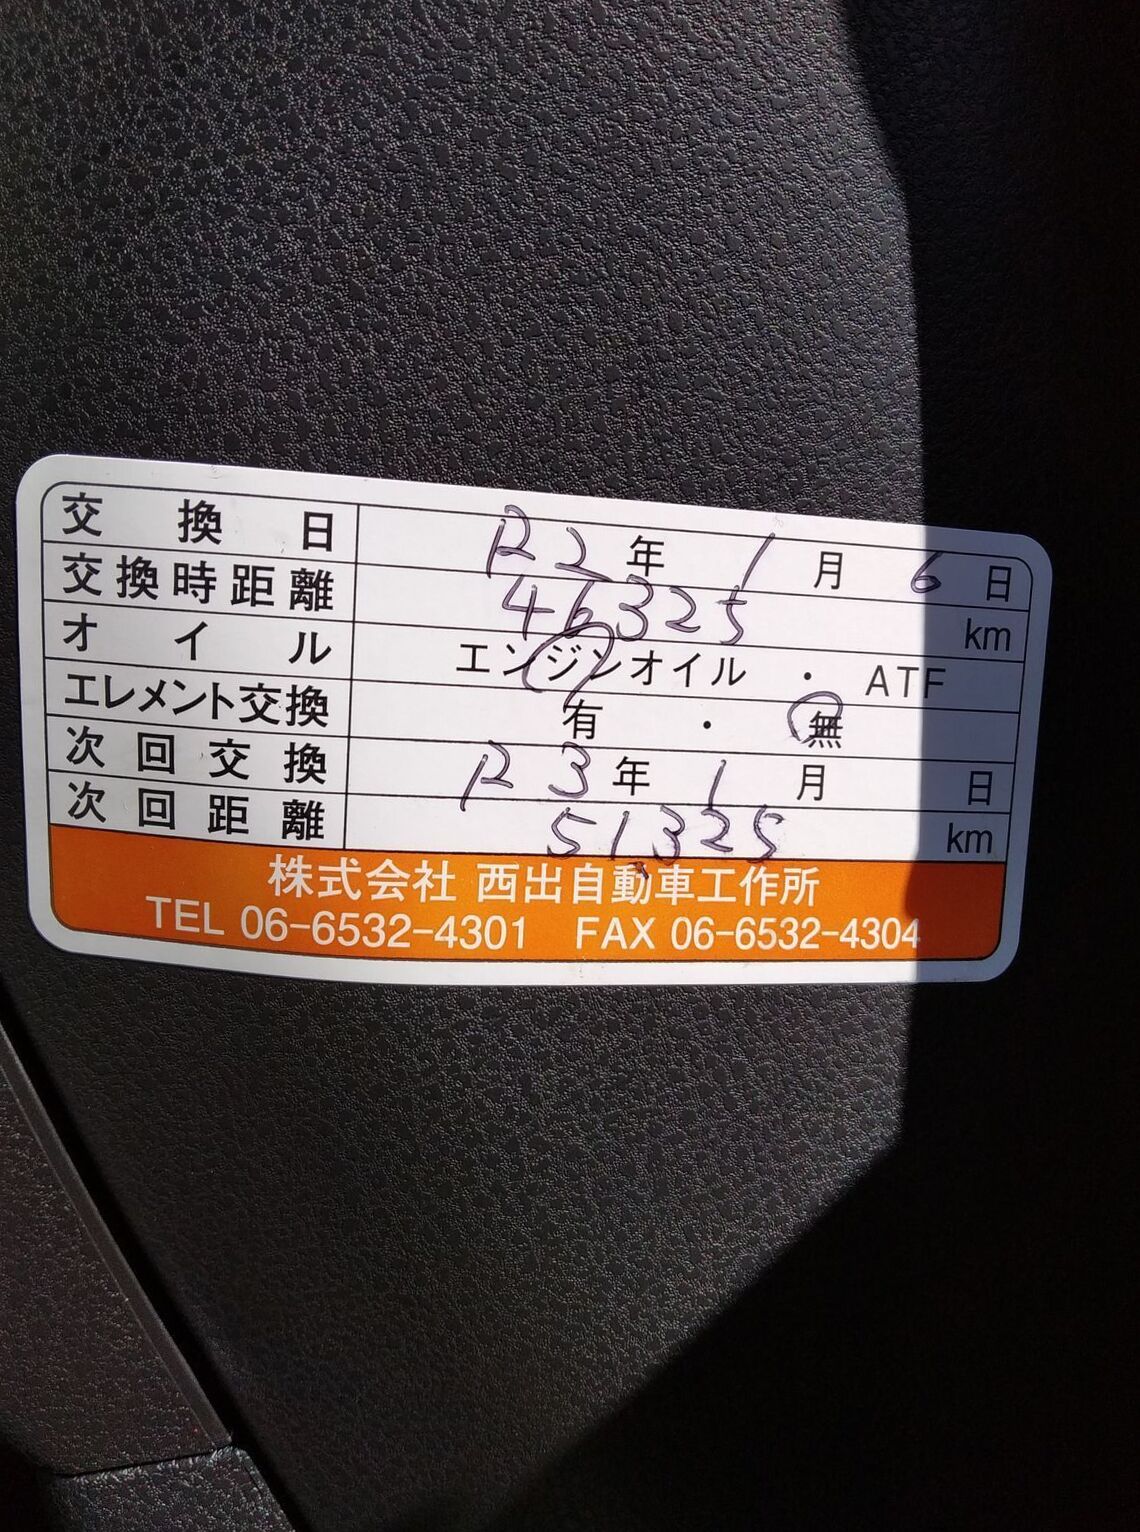 交換日 R2年1月6日
交換時距離 46,325 km
オイル エンジンオイル ・ ATF
エレメント交換 有 ・ 無
次回交換 R3年1月 日
次回距離 51,325 km
株式会社 西出自動車工作所
TEL 06-6532-4301 FAX 06-6532-4304